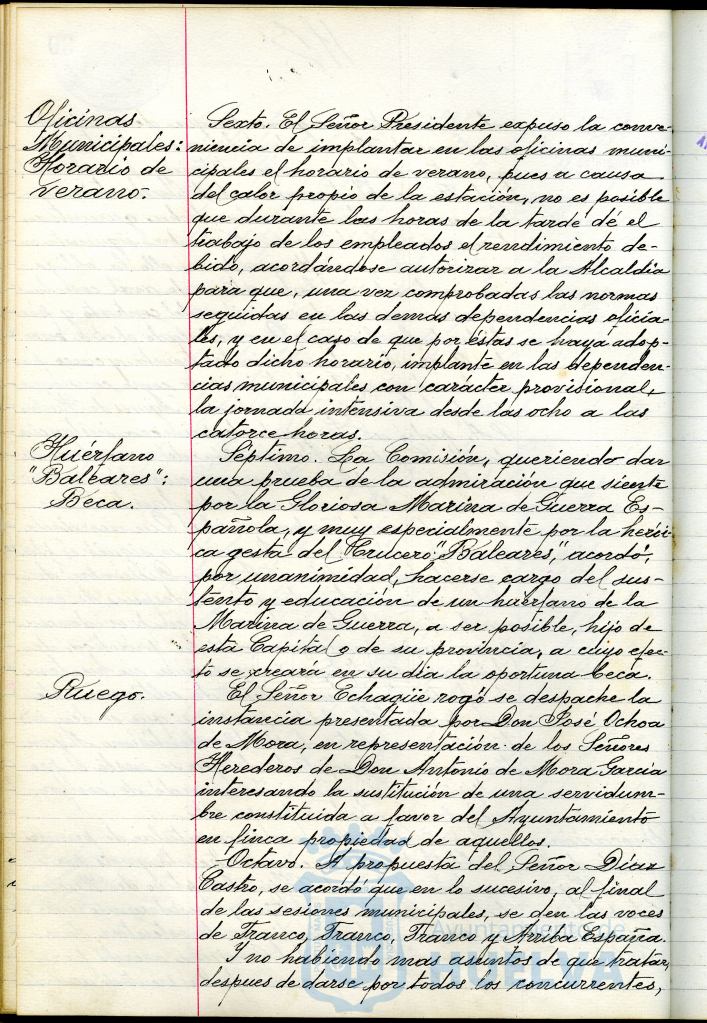 Oficinas
Municipales:
Horario de
verano.
Sexto. El Señor Presidente expuso la conve-
niencia de implantar en las oficinas muni-
cipales el horario de verano, pues a causa
del calor propio de la estación, no es posible
que durante las horas de la tarde dé el
trabajo de los empleados el rendimiento de-
bido, acordándose autorizar a la Alcaldía
para que, una vez comprobadas las normas
seguidas en las demás dependencias oficia-
les, y en el caso de que por éstas se haya adop-
tado dicho horario, implante en las dependen-
cias municipales con carácter provisional,
la jornada intensiva desde las ocho a las
catorce horas.
Huérfano
"Baleares":
Beca.
Séptimo. La Comisión, queriendo dar
una prueba de la admiración que siente
por la Gloriosa Marina de Guerra Es-
pañola, y muy especialmente por la herói-
ca gesta del Crucero "Baleares," acordó,
por unanimidad, hacerse cargo del sus-
tento y educación de un huérfano de la
Marina de Guerra, a ser posible, hijo de
esta Capital o de su provincia, a cuyo efec-
to se creará en su día la oportuna beca.
Ruego.
El Señor Echagüe rogó se despache la
instancia presentada por Don José Ochoa
de Mora, en representación de los Señores
Herederos de Don Antonio de Mora García
interesando la sustitución de una servidum-
bre constituida a favor del Ayuntamiento
en finca propiedad de aquellos.
Octavo. A propuesta del Señor Díaz
Castro, se acordó que en lo sucesivo, al final
de las sesiones municipales, se den las voces
de Franco, Franco, Franco y Arriba España.
Y no habiendo mas asuntos de que tratar,
despues de darse por todos los concurrentes,
Ayuntamiento de
HUELVA